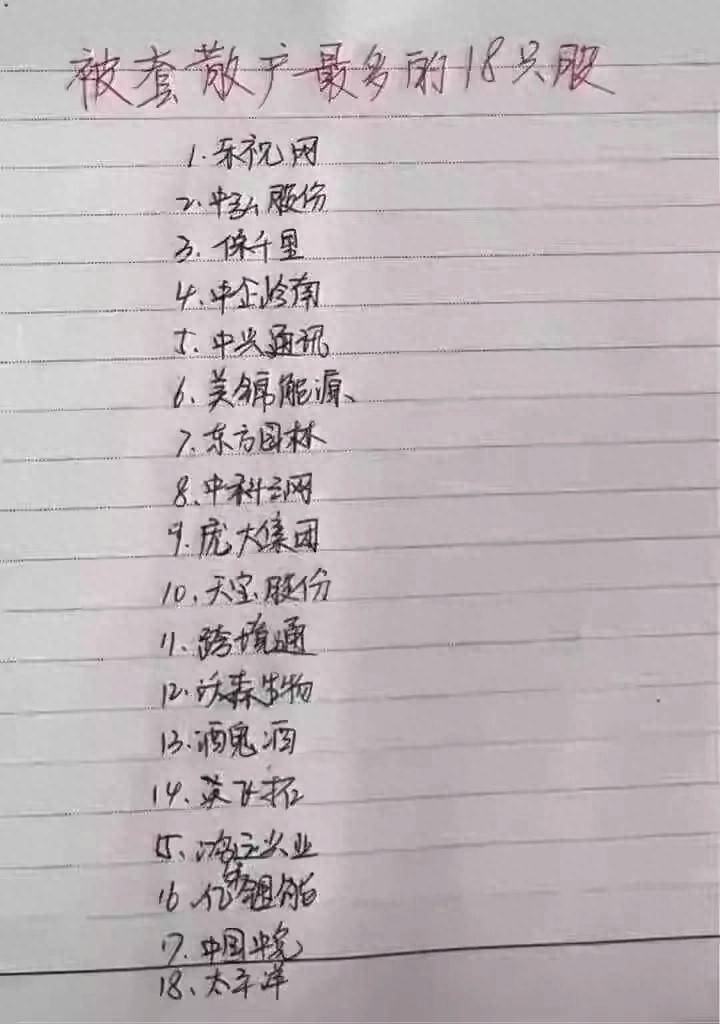 被套散户最多的18只股
1.乐视网
2.中弘股份
3.保千里
4.中企岭南
5.中兴通讯
6.美锦能源、
7.东方园林
8.中科云网
9.庞大集团
10.天宝股份
11.跨境通
12.沃森生物
13.酒鬼酒
14.英飞拓
15、鸿达兴业
16.亿纬锂能
17.中国中免
18、太平洋